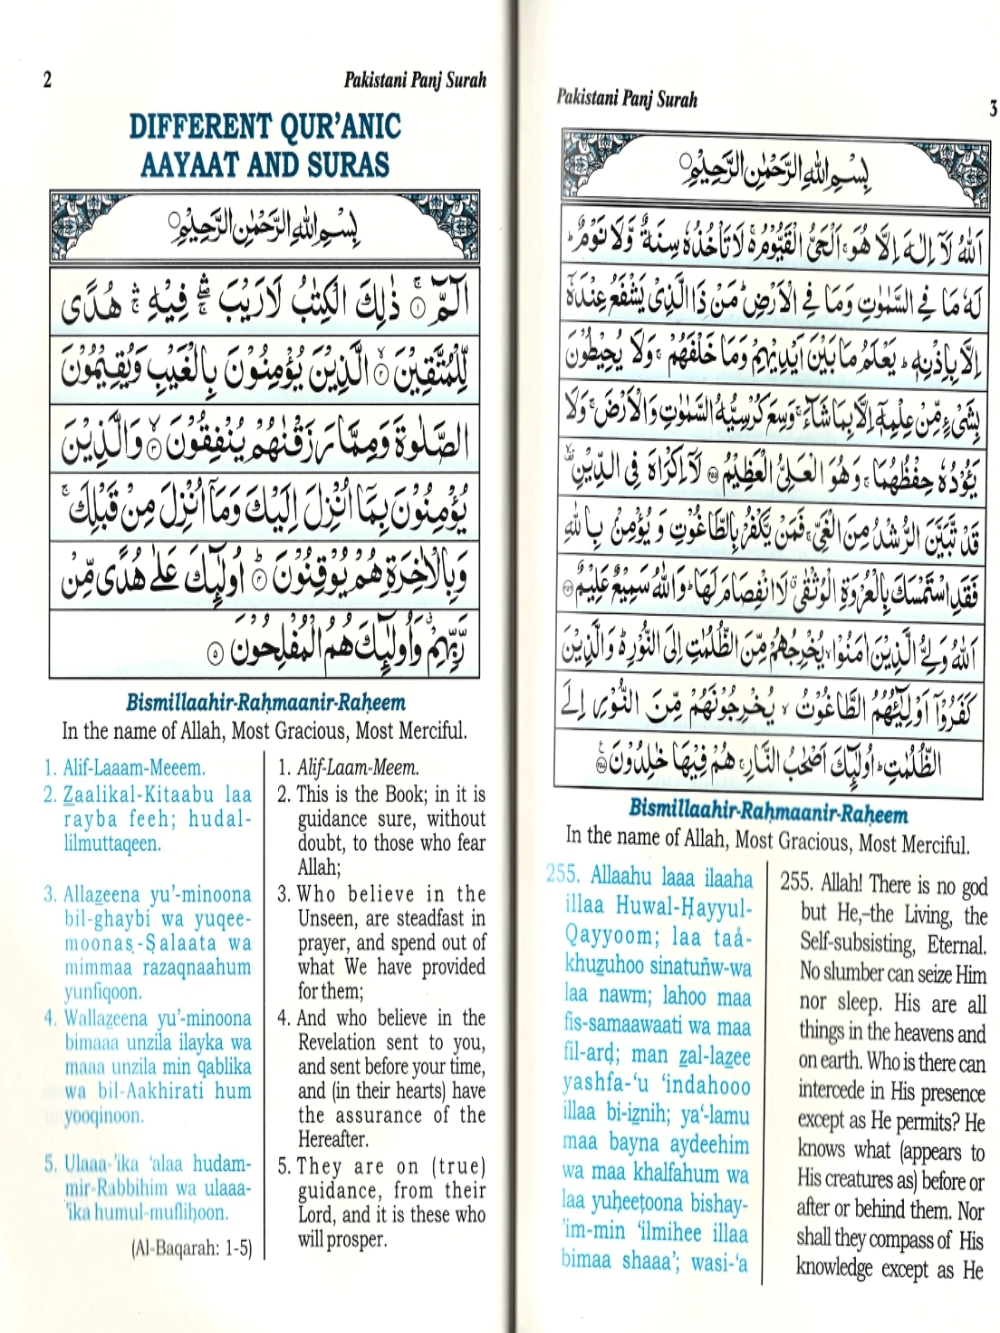 2
Pakistani Panj Surah
DIFFERENT QUR’ANIC
AAYAAT AND SURAS
بِسْمِ اللهِ الرَّحْمٰنِ الرَّحِيْمِ
الٓمّٓ ۚ ۱ ذٰلِكَ الْكِتٰبُ لَا رَيْبَ ۛۚ فِيْهِ ۛۚ هُدًى
لِّلْمُتَّقِيْنَ ۙ ۲ الَّذِيْنَ يُؤْمِنُوْنَ بِالْغَيْبِ وَيُقِيْمُوْنَ
الصَّلٰوةَ وَمِمَّا رَزَقْنٰهُمْ يُنْفِقُوْنَ ۙ ۳ وَالَّذِيْنَ
يُؤْمِنُوْنَ بِمَآ اُنْزِلَ اِلَيْكَ وَمَآ اُنْزِلَ مِنْ قَبْلِكَ ۚ
وَبِالْاٰخِرَةِ هُمْ يُوْقِنُوْنَ ؕ ۴ اُولٰٓئِكَ عَلٰى هُدًى مِّنْ
رَّبِّهِمْ ۗ وَاُولٰٓئِكَ هُمُ الْمُفْلِحُوْنَ ۵
Bismillaahir-Raḥmaanir-Raḥeem
In the name of Allah, Most Gracious, Most Merciful.
1. Alif-Laaam-Meeem.
2. Zaalikal-Kitaabu laa
rayba feeh; hudal-
lilmuttaqeen.
3. Allazeena yu’-minoona
bil-ghaybi wa yuqee-
moonaṣ-Ṣalaata wa
mimmaa razaqnaahum
yunfiqoon.
4. Wallazeena yu’-minoona
bimaaa unzila ilayka wa
maaa unzila min qablika
wa bil-Aakhirati hum
yooqinoon.
5. Ulaaa-’ika ‘alaa hudam-
mir-Rabbihim wa ulaaa-
’ika humul-mufliḥoon.
(Al-Baqarah: 1-5)
1. Alif-Laam-Meem.
2. This is the Book; in it is
guidance sure, without
doubt, to those who fear
Allah;
3. Who believe in the
Unseen, are steadfast in
prayer, and spend out of
what We have provided
for them;
4. And who believe in the
Revelation sent to you,
and sent before your time,
and (in their hearts) have
the assurance of the
Hereafter.
5. They are on (true)
guidance, from their
Lord, and it is these who
will prosper.
Pakistani Panj Surah
3
بِسْمِ اللهِ الرَّحْمٰنِ الرَّحِيْمِ
اَللّٰهُ لَآ اِلٰهَ اِلَّا هُوَ ۚ اَلْحَيُّ الْقَيُّوْمُ ۚ لَا تَاْخُذُهٗ سِنَةٌ وَّلَا نَوْمٌ ؕ
لَهٗ مَا فِي السَّمٰوٰتِ وَمَا فِي الْاَرْضِ ؕ مَنْ ذَا الَّذِيْ يَشْفَعُ عِنْدَهٗٓ
اِلَّا بِاِذْنِهٖ ؕ يَعْلَمُ مَا بَيْنَ اَيْدِيْهِمْ وَمَا خَلْفَهُمْ ۚ وَلَا يُحِيْطُوْنَ
بِشَيْءٍ مِّنْ عِلْمِهٖٓ اِلَّا بِمَا شَآءَ ۚ وَسِعَ كُرْسِيُّهُ السَّمٰوٰتِ وَالْاَرْضَ ۚ وَلَا
يَـُٔوْدُهٗ حِفْظُهُمَا ۚ وَهُوَ الْعَلِيُّ الْعَظِيْمُ ۲۵۵ لَآ اِكْرَاهَ فِي الدِّيْنِ ۙ
قَدْ تَّبَيَّنَ الرُّشْدُ مِنَ الْغَيِّ ۚ فَمَنْ يَّكْفُرْ بِالطَّاغُوْتِ وَيُؤْمِنْ بِاللّٰهِ
فَقَدِ اسْتَمْسَكَ بِالْعُرْوَةِ الْوُثْقٰى ۗ لَا انْفِصَامَ لَهَا ؕ وَاللّٰهُ سَمِيْعٌ عَلِيْمٌ ۲۵۶
اَللّٰهُ وَلِيُّ الَّذِيْنَ اٰمَنُوْا ۙ يُخْرِجُهُمْ مِّنَ الظُّلُمٰتِ اِلَى النُّوْرِ ؕ وَالَّذِيْنَ
كَفَرُوْٓا اَوْلِيٰٓـُٔهُمُ الطَّاغُوْتُ ۙ يُخْرِجُوْنَهُمْ مِّنَ النُّوْرِ اِلَى
الظُّلُمٰتِ ؕ اُولٰٓئِكَ اَصْحٰبُ النَّارِ ۚ هُمْ فِيْهَا خٰلِدُوْنَ ۲۵۷
Bismillaahir-Raḥmaanir-Raḥeem
In the name of Allah, Most Gracious, Most Merciful.
255. Allaahu laaa ilaaha
illaa Huwal-Ḥayyul-
Qayyoom; laa taå-
khuzuhoo sinatuñw-wa
laa nawm; lahoo maa
fis-samaawaati wa maa
fil-arḍ; man zal-lazee
yashfa-‘u ‘indahooo
illaa bi-iznih; ya‘-lamu
maa bayna aydeehim
wa maa khalfahum wa
laa yuḥeeṭoona bishay-
’im-min ‘ilmihee illaa
bimaa shaaa’; wasi-‘a
255. Allah! There is no god
but He,–the Living, the
Self-subsisting, Eternal.
No slumber can seize Him
nor sleep. His are all
things in the heavens and
on earth. Who is there can
intercede in His presence
except as He permits? He
knows what (appears to
His creatures as) before or
after or behind them. Nor
shall they compass of His
knowledge except as He